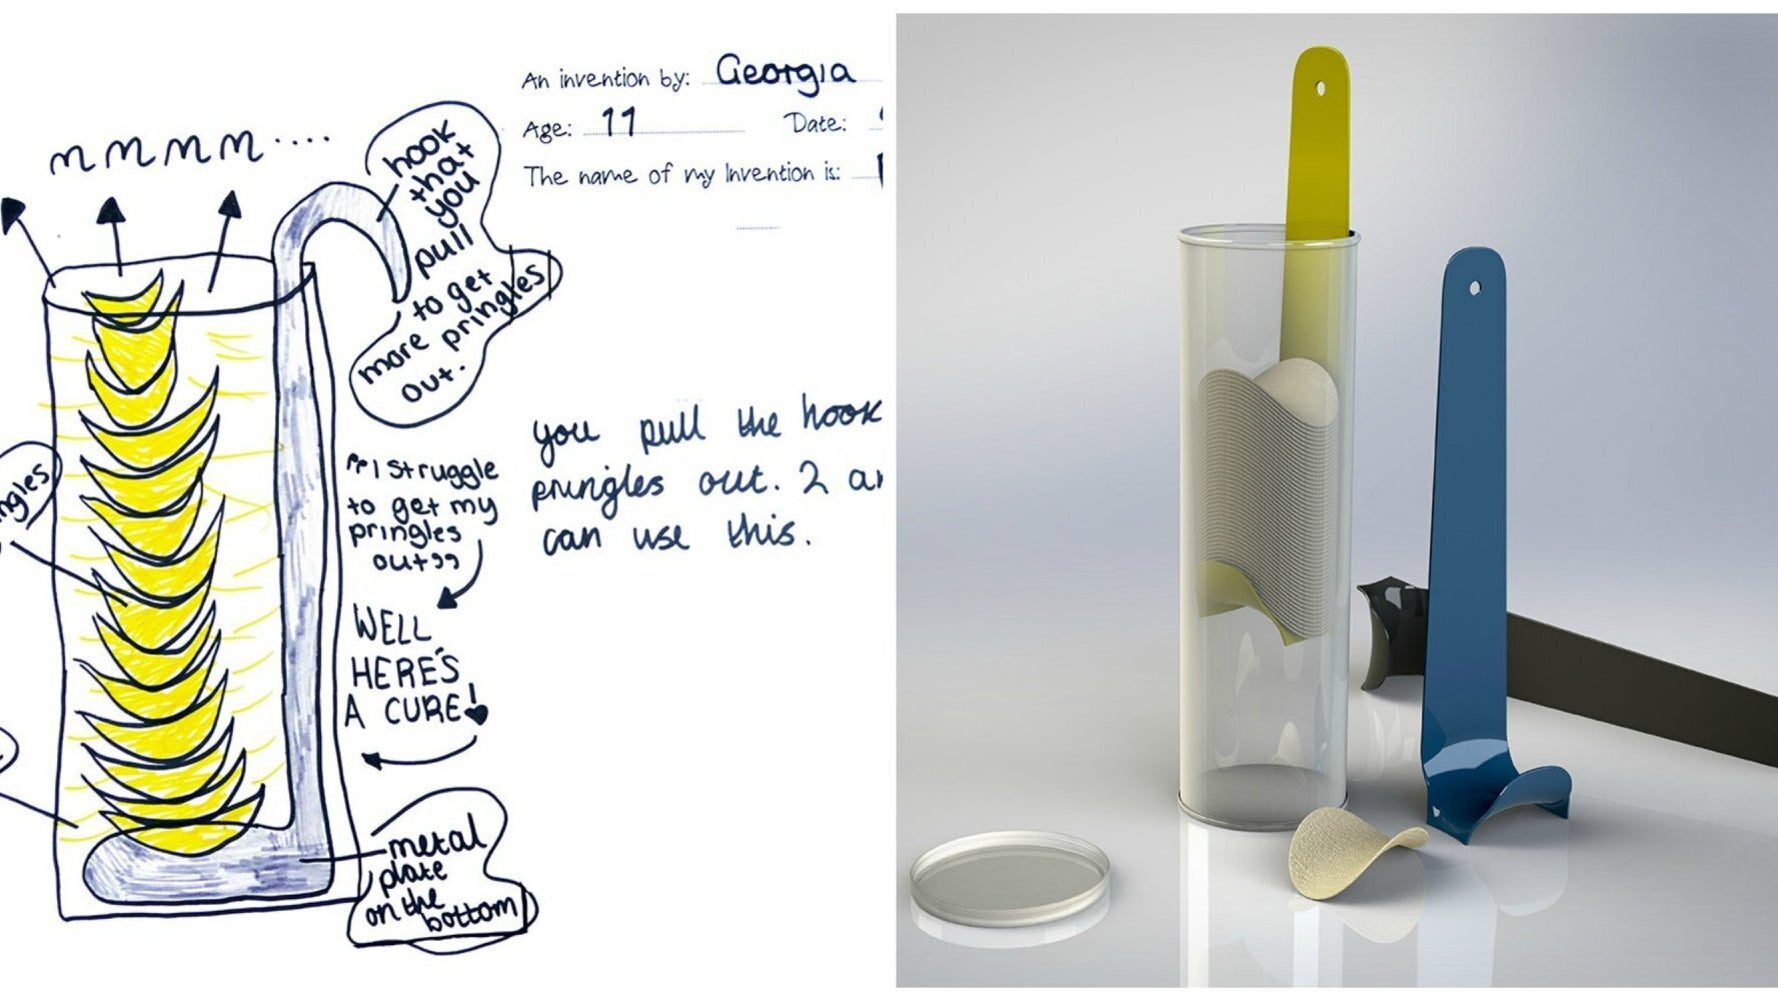 An invention by: Georgia
Age: 11 Date:
The name of my Invention is:
mmmm....
hook
that
you
pull
to get
more pringles
out.
you pull the hook
pringles out. 2
can use this.
"I struggle
to get my
pringles
out"
WELL
HERE'S
A CURE!
metal
plate
on the
bottom